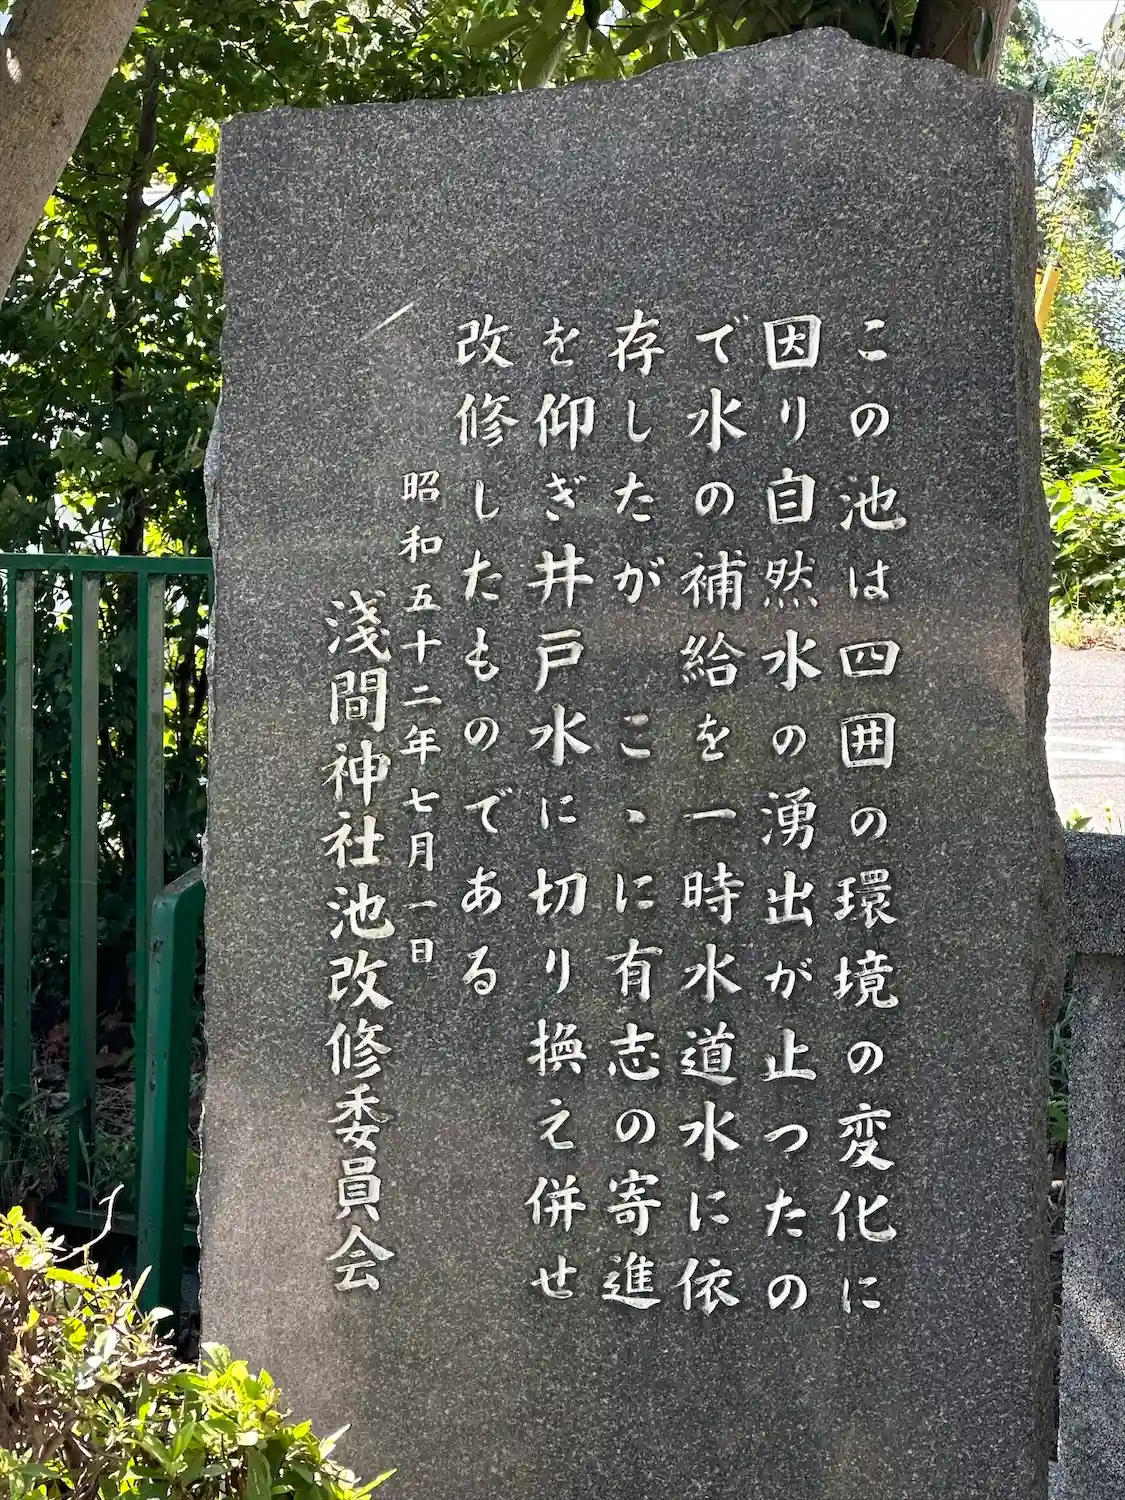 この池は四囲の環境の変化に
因り自然水の湧出が止ったの
で水の補給を一時水道水に依
存したがこゝに有志の寄進
を仰ぎ井戸水に切り換え併せ
改修したものである
昭和五十二年七月一日
淺間神社池改修委員会